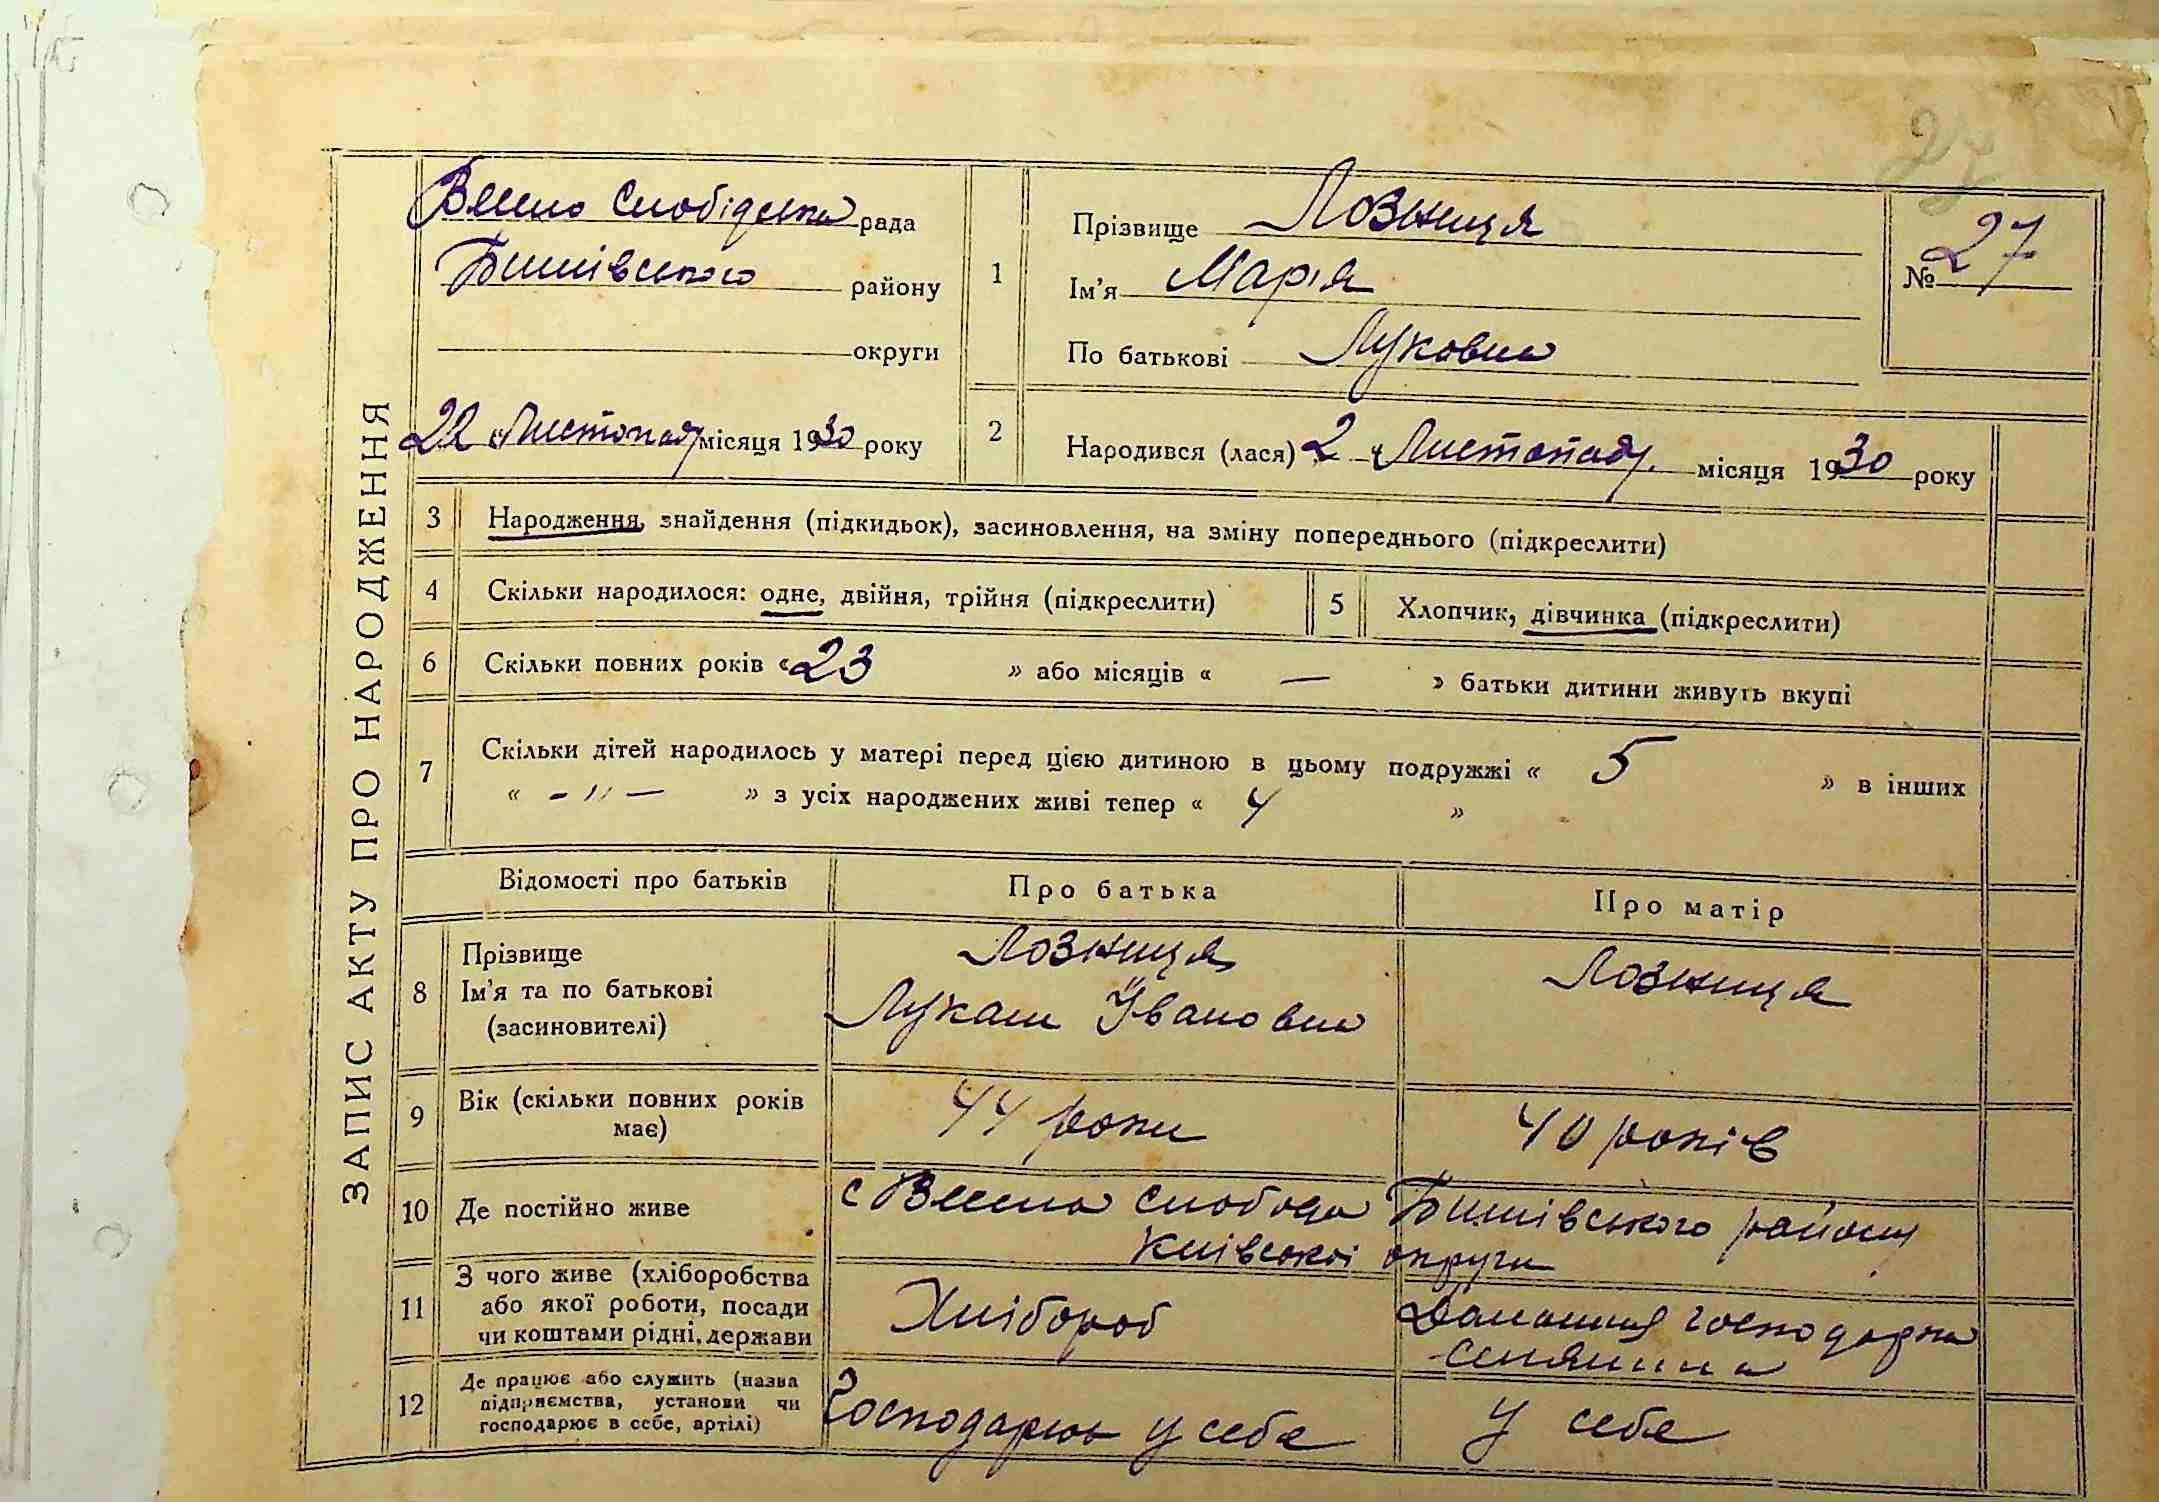 27
ЗАПИС АКТУ ПРО НАРОДЖЕННЯ
Весело Слобідська рада
Бишівського району
округи
22 Листопаду місяця 1930 року
1
Прізвище Лозниця
Ім'я Марія
По батькові Луковна
№ 27
2
Народився (лася) 2 „Листопаду місяця 1930 року
3 Народження, знайдення (підкидьок), засиновлення, на зміну попереднього (підкреслити)
4 Скільки народилося: одне, двійня, трійня (підкреслити)
5 Хлопчик, дівчинка (підкреслити)
6 Скільки повних років « 23 » або місяців « — » батьки дитини живуть вкупі
7 Скільки дітей народилось у матері перед цією дитиною в цьому подружжі « 5 » в інших
« -"- » з усіх народжених живі тепер « 4 »
Відомості про батьків Про батька Про матір
8 Прізвище
Ім'я та по батькові
(засиновителі)
Лозниця
Лукаш Іванович
Лозниця
9 Вік (скільки повних років
має)
44 роки
40 років
10 Де постійно живе
с Весела Слобода Бишівського району
Київської округи
11 З чого живе (хліборобства
або якої роботи, посади
чи коштами рідні, держави
Хлібороб
Домашня господарка
селянина
12 Де працює або служить (назва
підприємства, установи чи
господарює в себе, артілі)
Господарює у себе
у себе